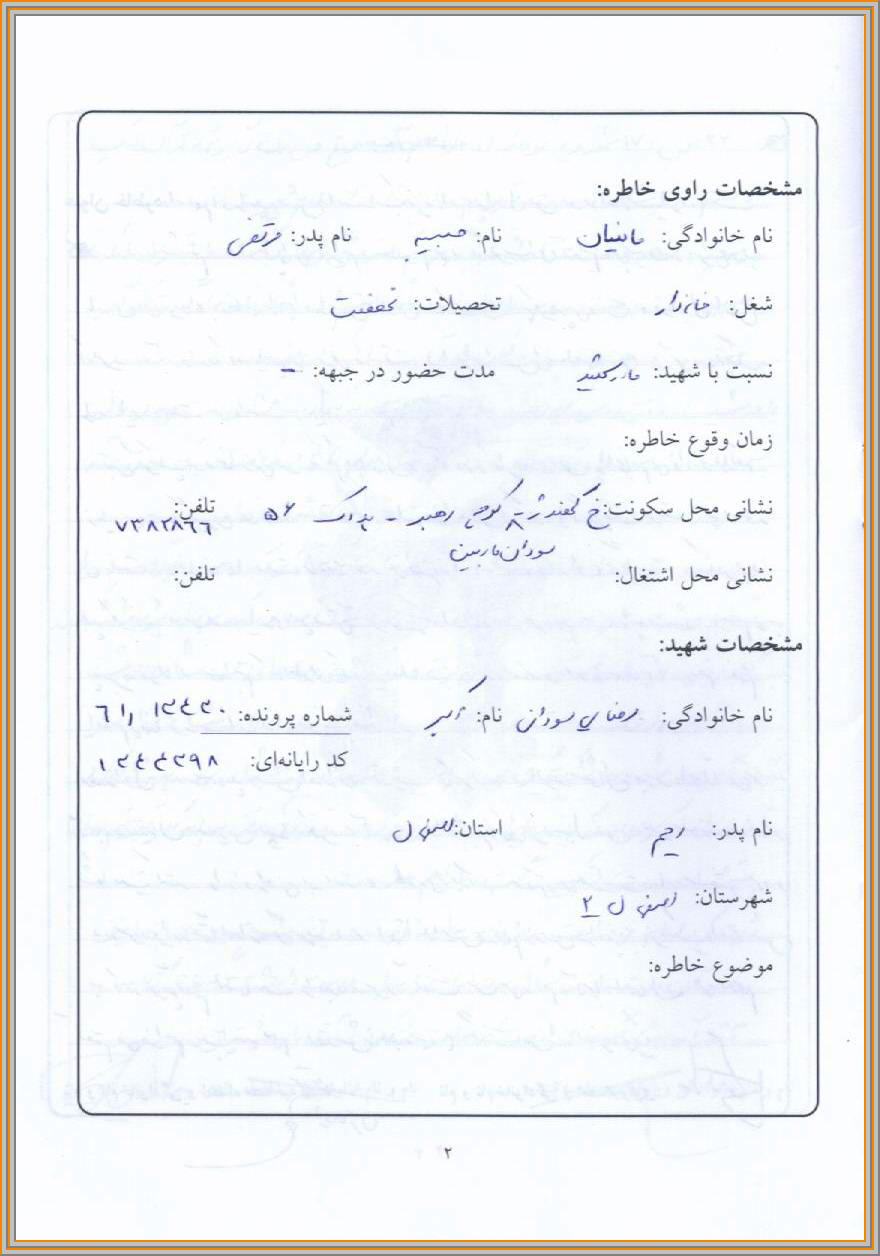 مشخصات راوی خاطره:
نام خانوادگی: مانیان نام: حبیبه نام پدر: مرتضی
شغل: خانه‌دار تحصیلات: نهضت
نسبت با شهید: مادر شهید مدت حضور در جبهه: –
زمان وقوع خاطره:
نشانی محل سکونت: خ کهندژ - کوچه ۸ - پلاک ۵۶ تلفن: ۷۳۸۲۸۶۶
سودان
نشانی محل اشتغال: تلفن:
مشخصات شهید:
نام خانوادگی: رضایی سودانی نام: اکبر شماره پرونده: ۶۱٫۱۳۴۳۰
کد رایانه‌ای: ۱۳۴۴۳۹۸
نام پدر: رحیم استان: اصفهان
شهرستان: اصفهان ۲
موضوع خاطره:
۲